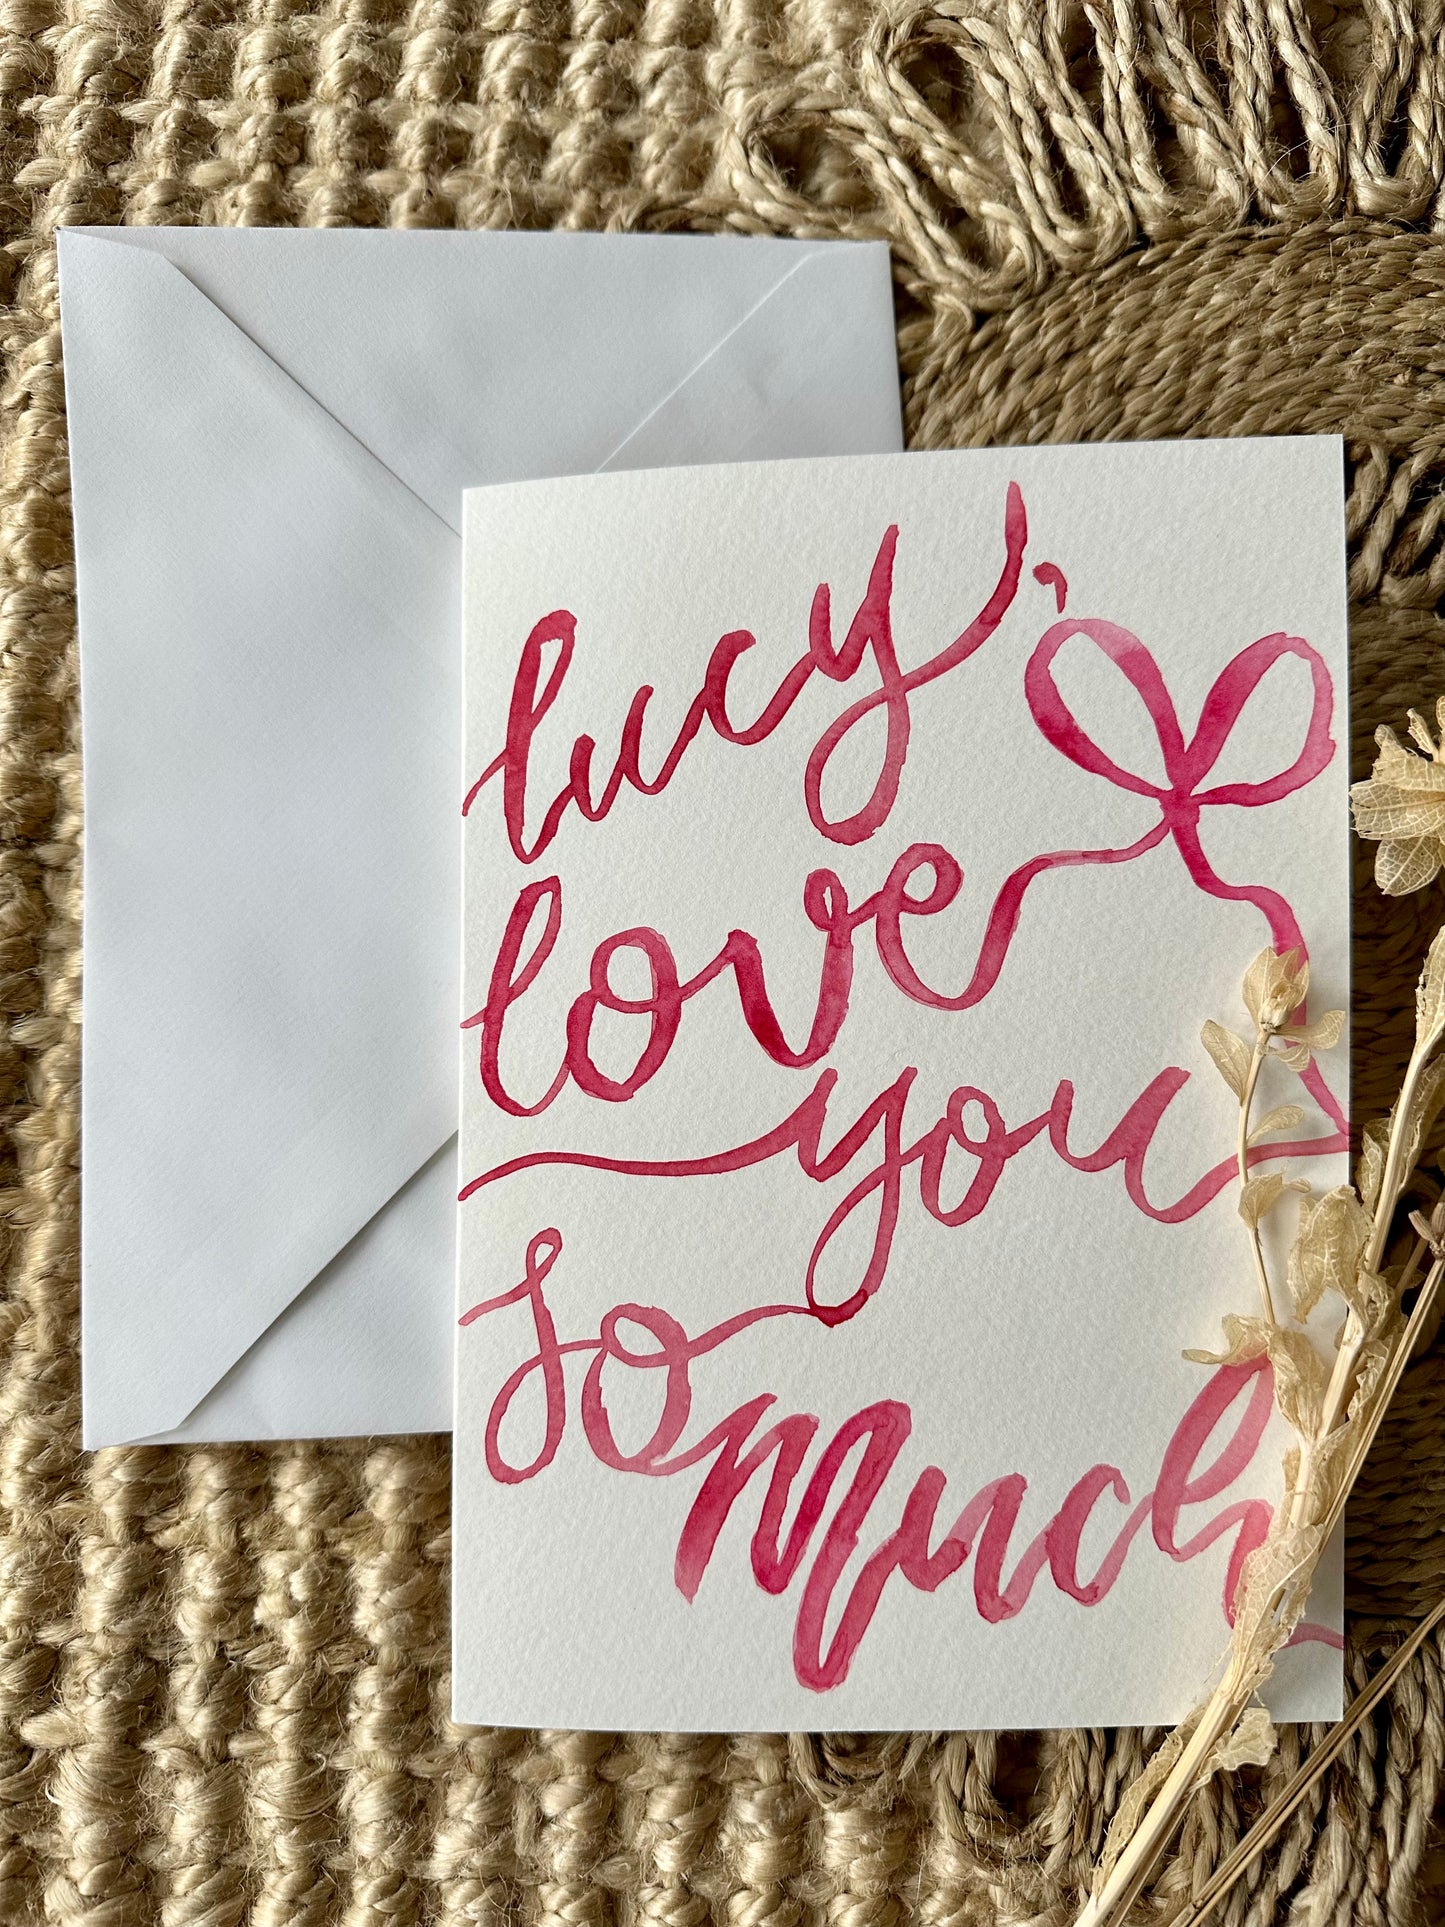 lucy,
love
you
so
much